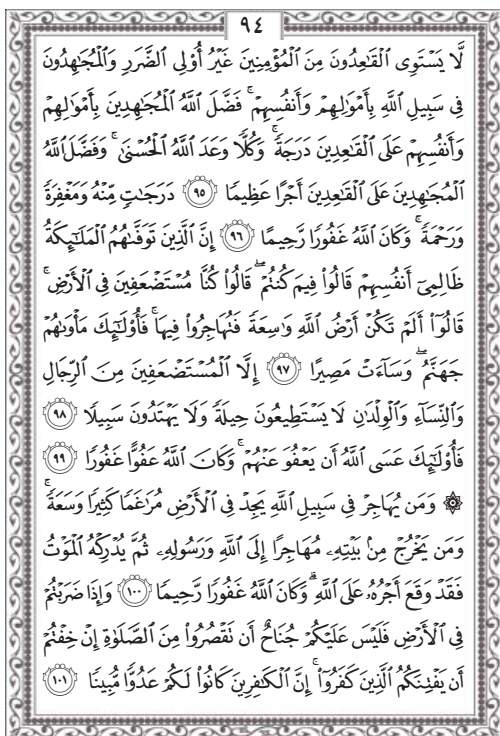 ٩٤
لَّا يَسْتَوِى الْقَٰعِدُونَ مِنَ الْمُؤْمِنِينَ غَيْرُ أُوْلِى الضَّرَرِ وَالْمُجَٰهِدُونَ
فِى سَبِيلِ اللَّهِ بِأَمْوَٰلِهِمْ وَأَنفُسِهِمْ ۚ فَضَّلَ اللَّهُ الْمُجَٰهِدِينَ بِأَمْوَٰلِهِمْ
وَأَنفُسِهِمْ عَلَى الْقَٰعِدِينَ دَرَجَةً ۚ وَكُلًّا وَعَدَ اللَّهُ الْحُسْنَىٰ ۚ وَفَضَّلَ اللَّهُ
الْمُجَٰهِدِينَ عَلَى الْقَٰعِدِينَ أَجْرًا عَظِيمًا ٩٥ دَرَجَٰتٍ مِّنْهُ وَمَغْفِرَةً
وَرَحْمَةً ۚ وَكَانَ اللَّهُ غَفُورًا رَّحِيمًا ٩٦ إِنَّ الَّذِينَ تَوَفَّىٰهُمُ الْمَلَٰٓئِكَةُ
ظَالِمِىٓ أَنفُسِهِمْ قَالُوا۟ فِيمَ كُنتُمْ ۖ قَالُوا۟ كُنَّا مُسْتَضْعَفِينَ فِى الْأَرْضِ ۚ
قَالُوٓا۟ أَلَمْ تَكُنْ أَرْضُ اللَّهِ وَٰسِعَةً فَتُهَاجِرُوا۟ فِيهَا ۚ فَأُو۟لَٰٓئِكَ مَأْوَىٰهُمْ
جَهَنَّمُ ۖ وَسَآءَتْ مَصِيرًا ٩٧ إِلَّا الْمُسْتَضْعَفِينَ مِنَ الرِّجَالِ
وَالنِّسَآءِ وَالْوِلْدَٰنِ لَا يَسْتَطِيعُونَ حِيلَةً وَلَا يَهْتَدُونَ سَبِيلًا ٩٨
فَأُو۟لَٰٓئِكَ عَسَى اللَّهُ أَن يَعْفُوَ عَنْهُمْ ۚ وَكَانَ اللَّهُ عَفُوًّا غَفُورًا ٩٩
۞ وَمَن يُهَاجِرْ فِى سَبِيلِ اللَّهِ يَجِدْ فِى الْأَرْضِ مُرَٰغَمًا كَثِيرًا وَسَعَةً ۚ
وَمَن يَخْرُجْ مِنۢ بَيْتِهِۦ مُهَاجِرًا إِلَى اللَّهِ وَرَسُولِهِۦ ثُمَّ يُدْرِكْهُ الْمَوْتُ
فَقَدْ وَقَعَ أَجْرُهُۥ عَلَى اللَّهِ ۗ وَكَانَ اللَّهُ غَفُورًا رَّحِيمًا ١٠٠ وَإِذَا ضَرَبْتُمْ
فِى الْأَرْضِ فَلَيْسَ عَلَيْكُمْ جُنَاحٌ أَن تَقْصُرُوا۟ مِنَ الصَّلَوٰةِ إِنْ خِفْتُمْ
أَن يَفْتِنَكُمُ الَّذِينَ كَفَرُوٓا۟ ۚ إِنَّ الْكَٰفِرِينَ كَانُوا۟ لَكُمْ عَدُوًّا مُّبِينًا ١٠١